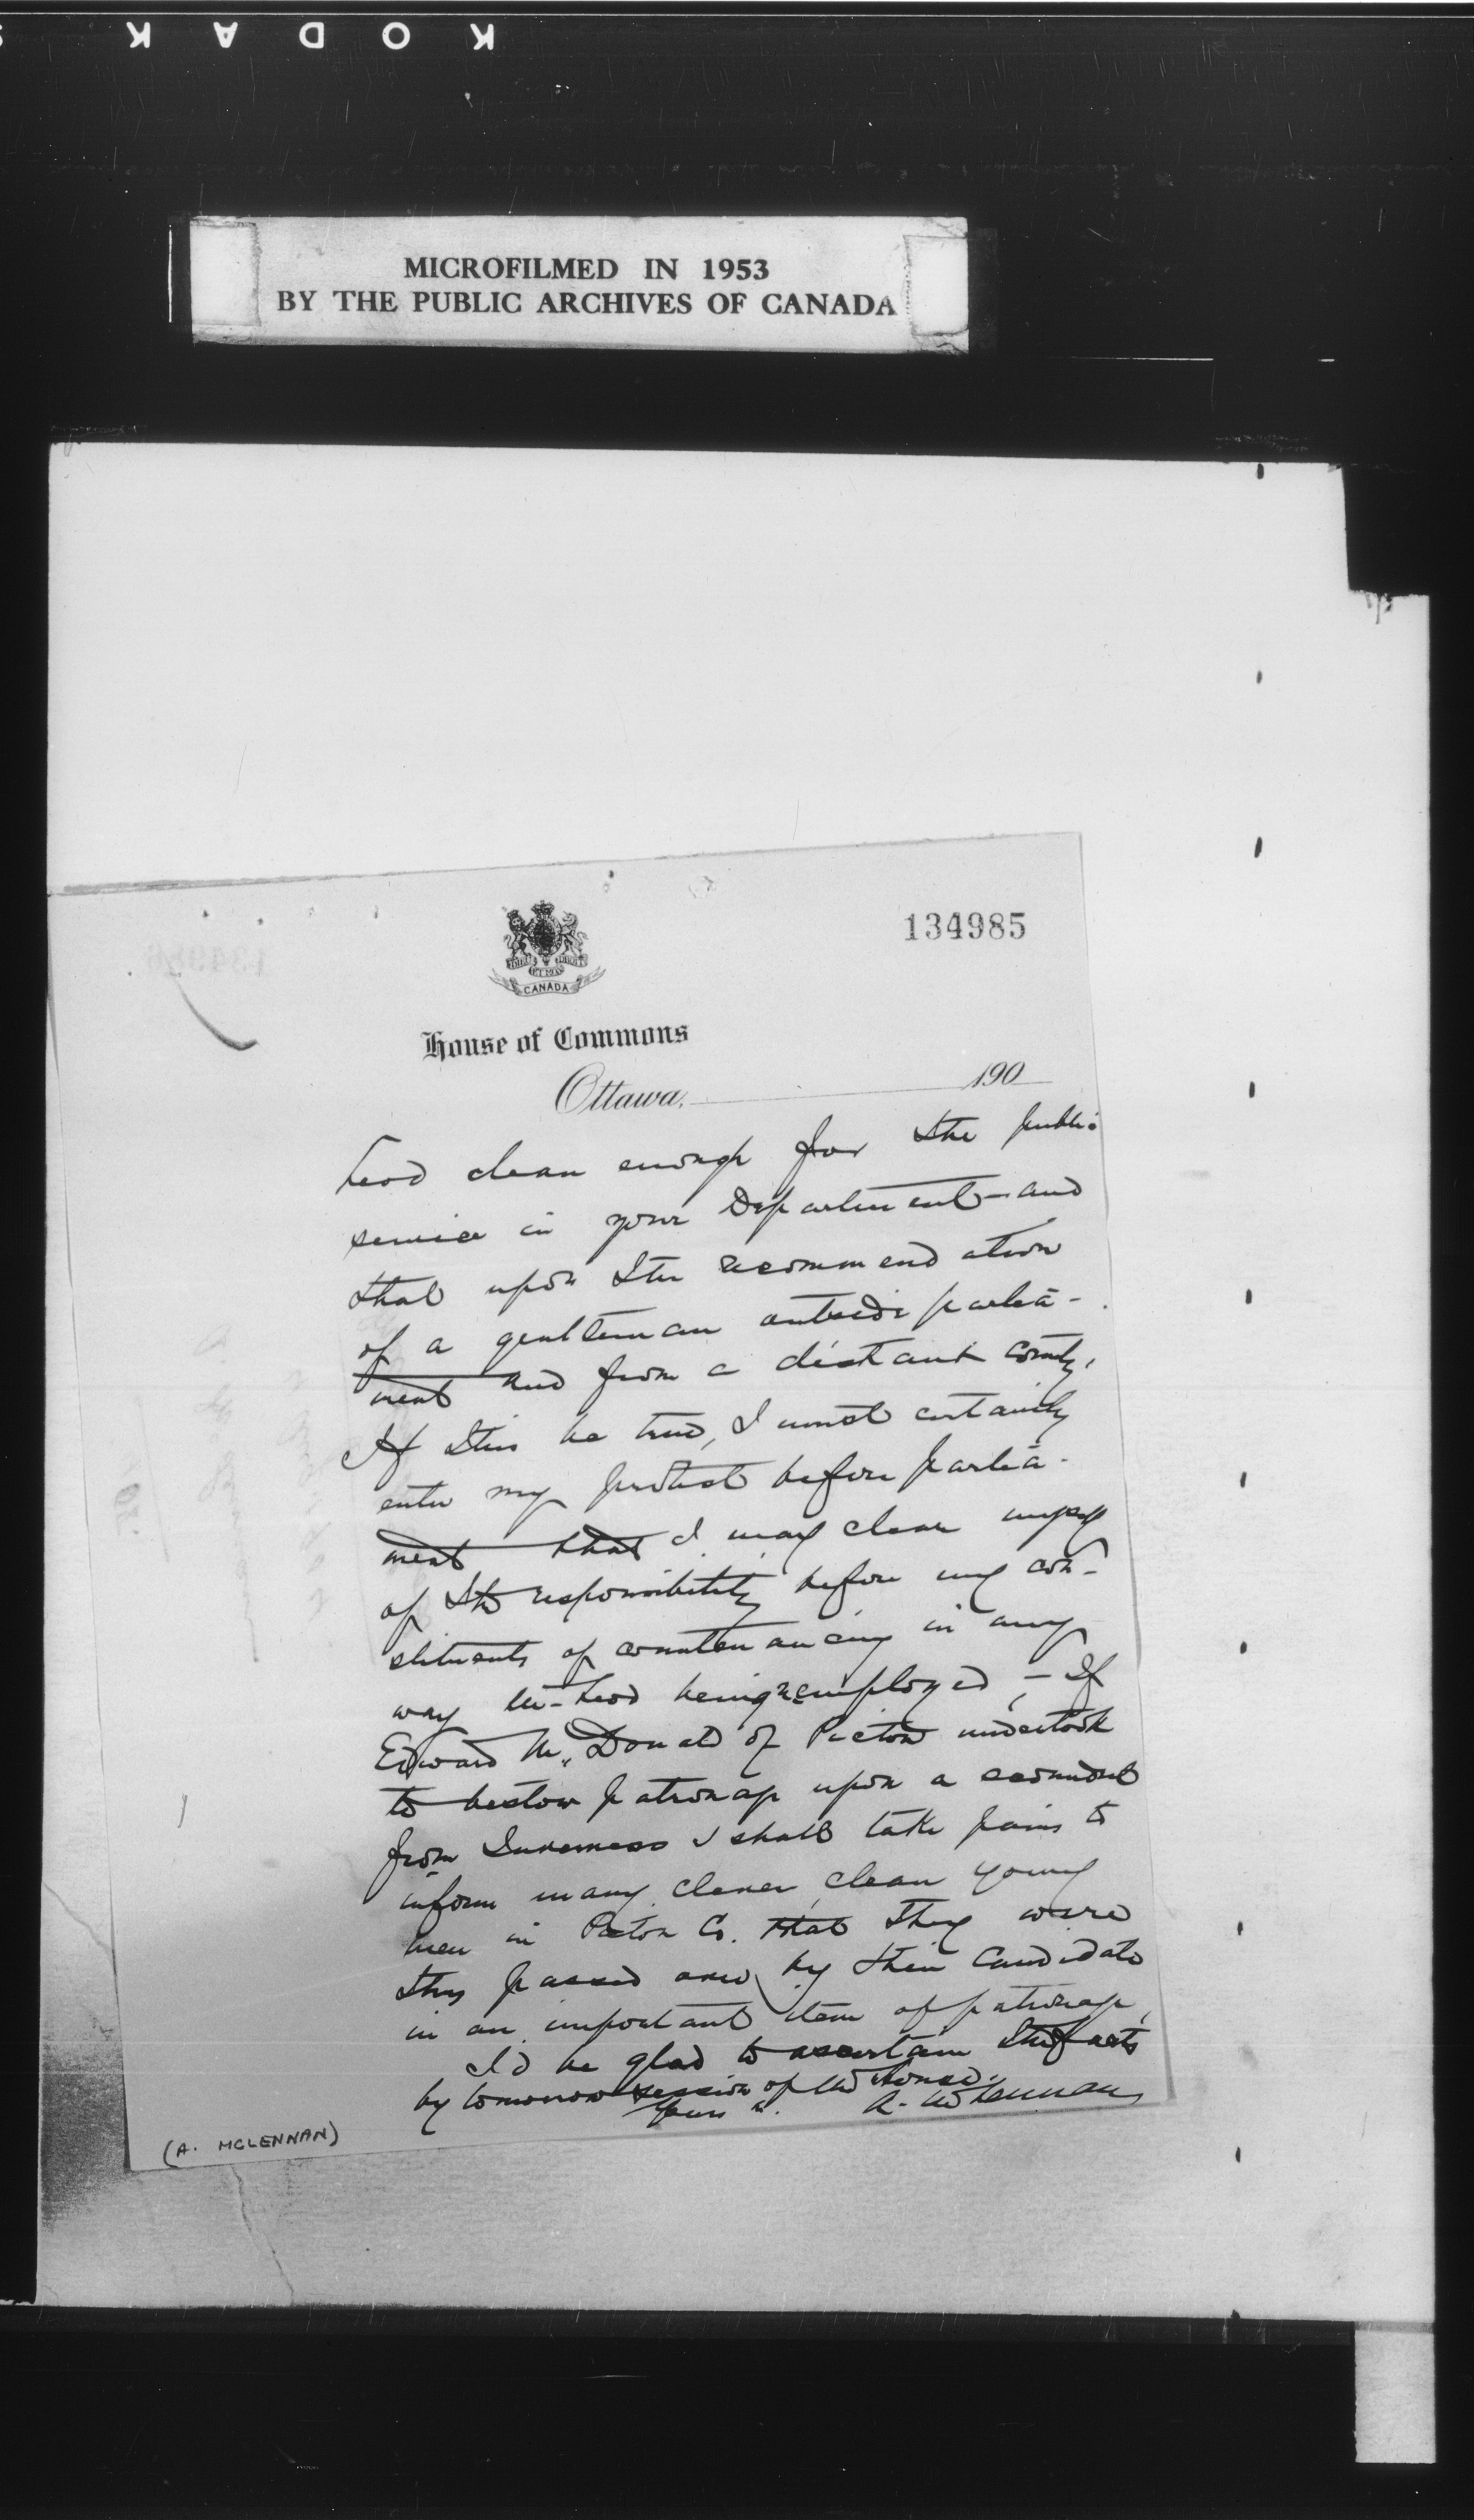 KODAK
MICROFILMED IN 1953
BY THE PUBLIC ARCHIVES OF CANADA
134985
CANADA
House of Commons
Ottawa, 190
clean enough for the public
service in your Department – and
that upon the recommendation
of a gentleman outside parlia-
ment and from a distant county.
If this be true, I must certainly
enter my protest before parlia-
ment that I may clear myself
of the responsibility before my con-
stituents of countenancing in any
way being reemployed, – If
Edward McDonald of Pictou undertook
to bestow patronage upon a scoundrel
from Inverness I shall take pains to
inform many clever, clean young
men in Pictou Co. that they were
thus passed over by their Candidate
in an important item of patronage,
I'd be glad to ascertain the facts
by tomorrow session of the House.
Yours &. A. McLennan
(A. MCLENNAN)